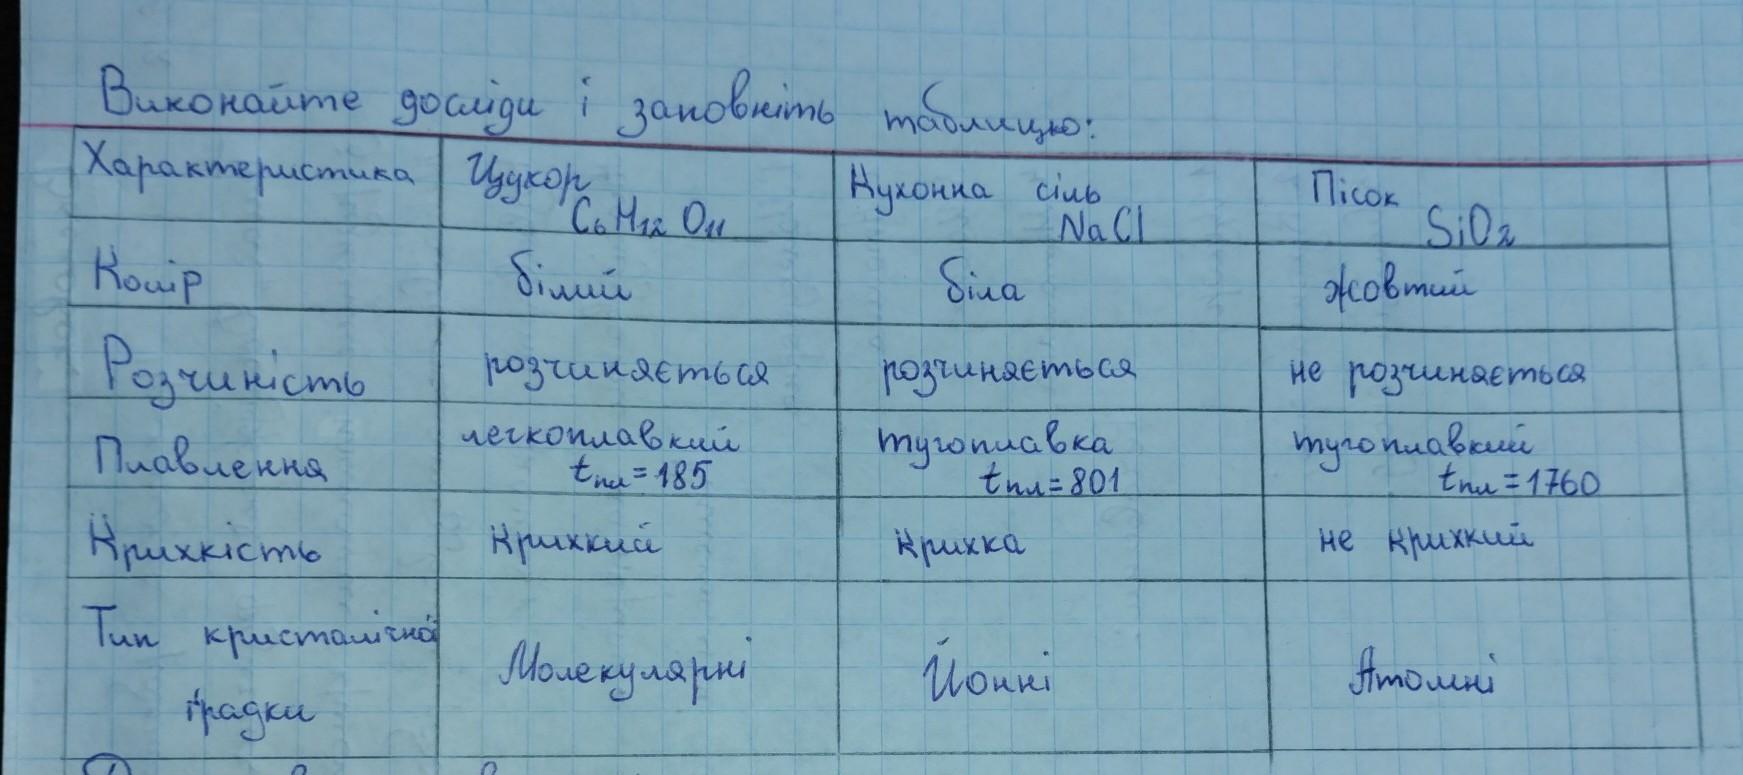 Виконайте досліди і заповніть таблицю:
Характеристика Цукор Кухонна сіль Пісок
C₆H₁₂O₁₁ NaCl SiO₂
Колір білий біла жовтий
Розчиність розчиняється розчиняється не розчиняється
Плавлення легкоплавкий тугоплавка тугоплавкий
tпл=185 tпл=801 tпл=1760
Крихкість крихкий крихка не крихкий
Тип кристалічної
ґрадки Молекулярні Йонні Атомні